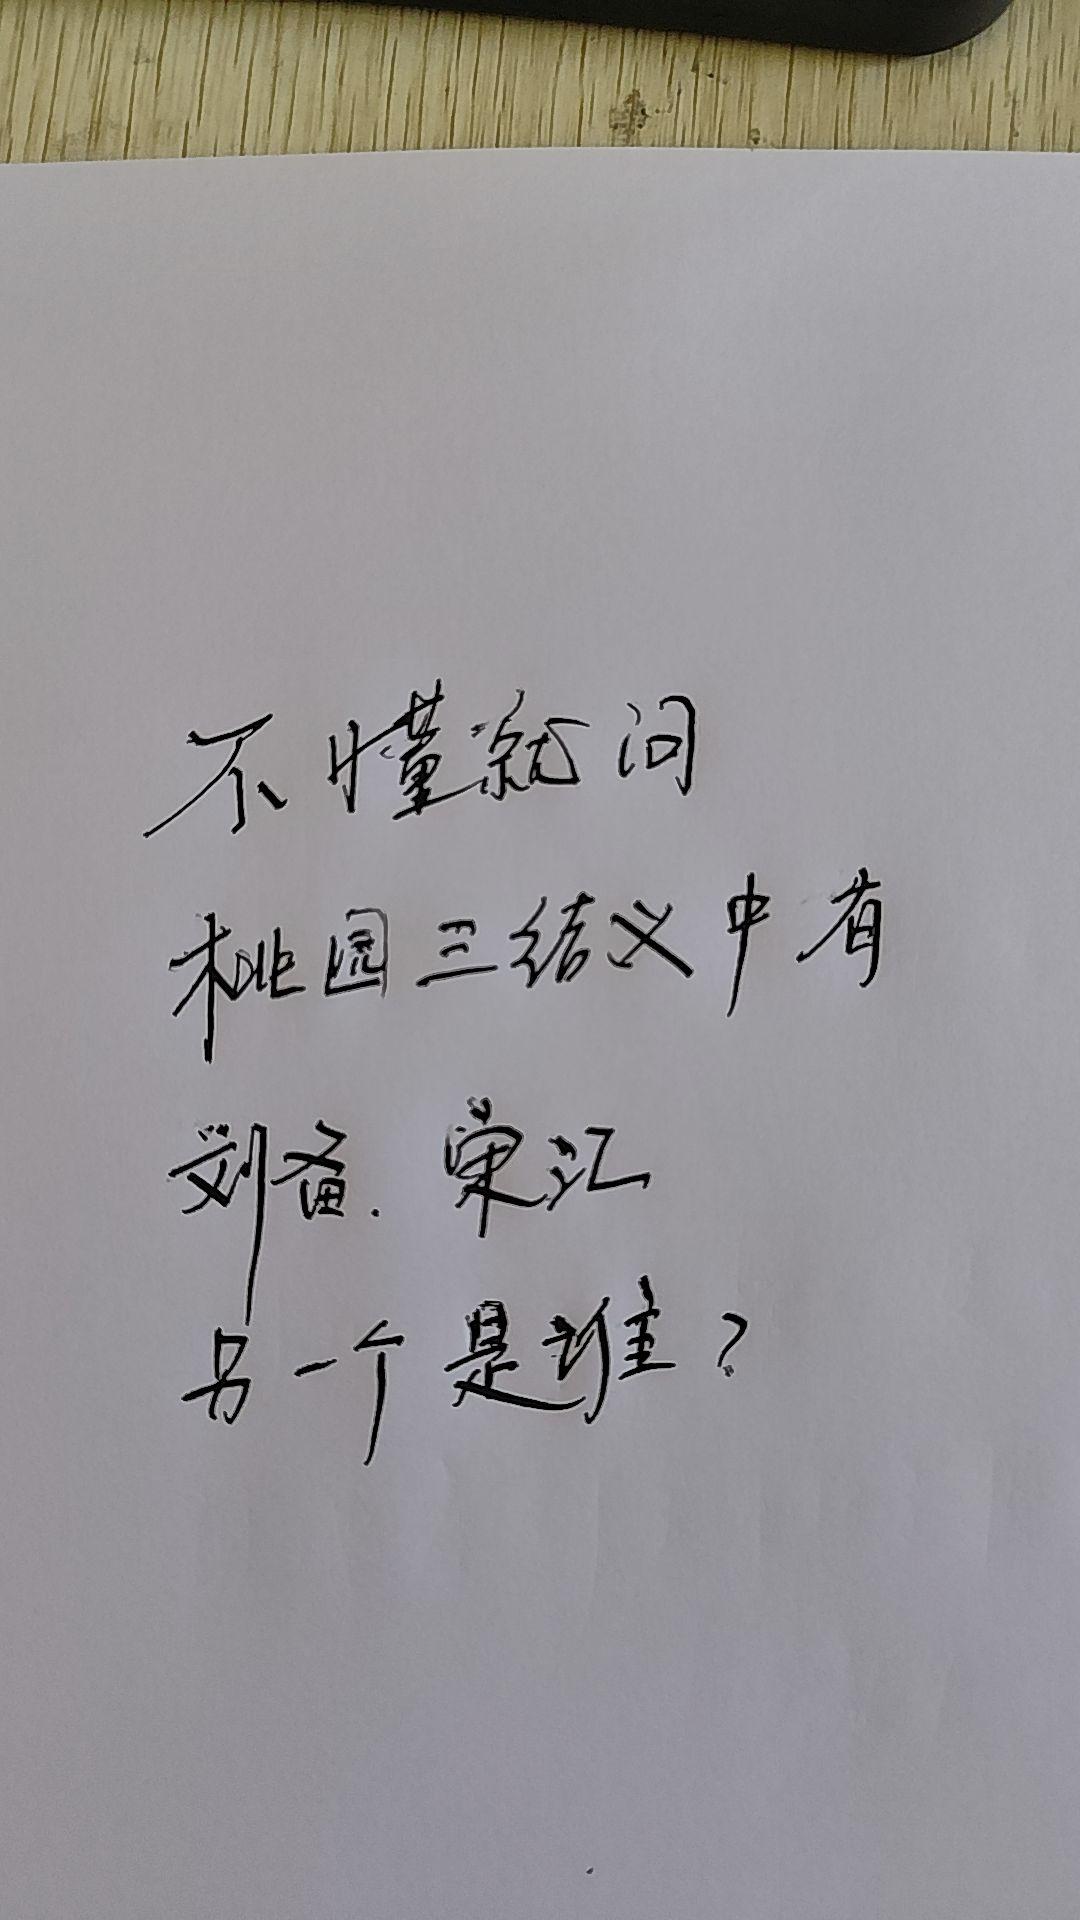 不懂就问
桃园三结义中有
刘备.宋江
另一个是谁?